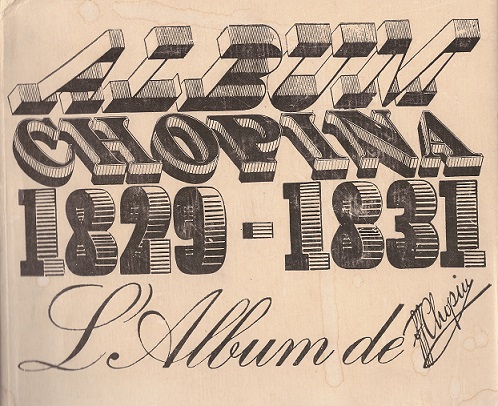 ALBUM
CHOPINA
1829-1831
L'Album de FChopin